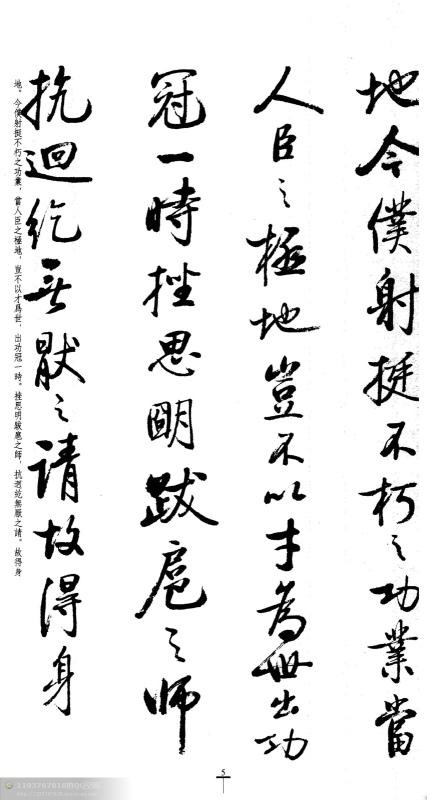 地今僕射挺不朽之功業當
人臣之極地豈不以才為世出功
冠一時挫思明跋扈之師
抗迴紇無厭之請故得身
地。今僕射挺不朽之功業，當人臣之極地，豈不以才爲世，出功冠一時。挫思明跋扈之師，抗迴紇無厭之請。故得身
5